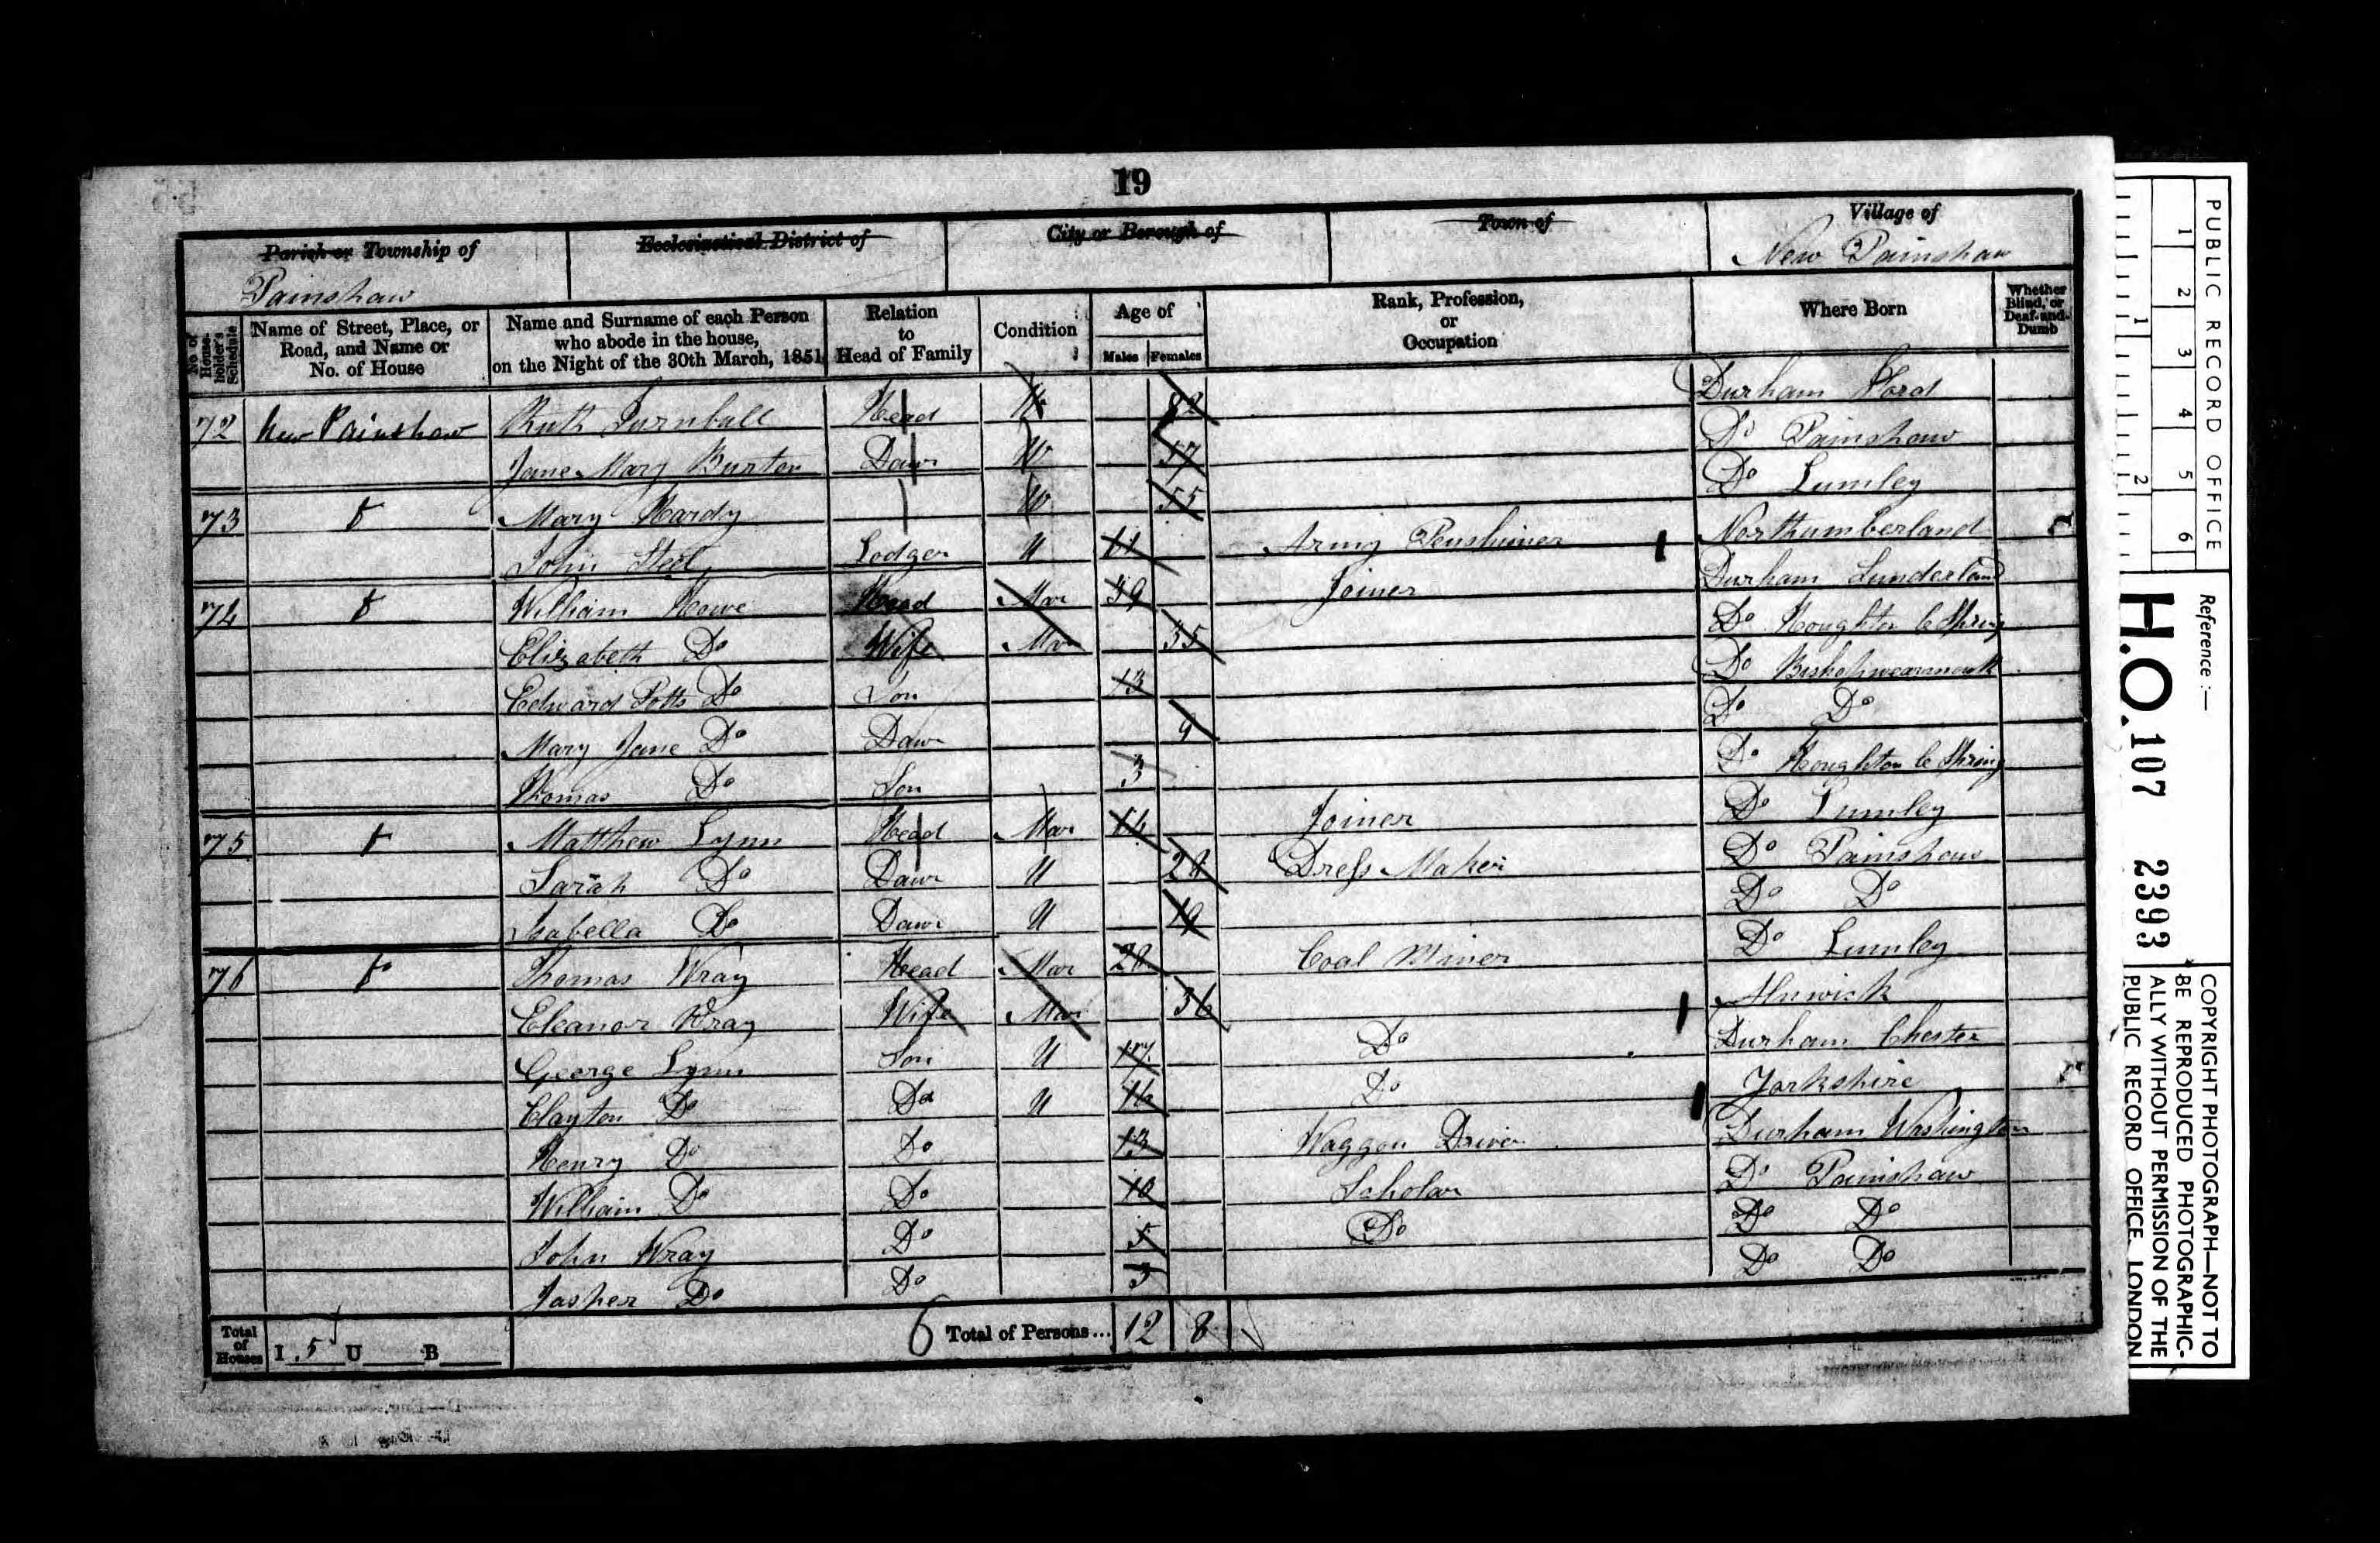 19
Parish or Township of Ecclesiastical District of City or Borough of Town of Village of
Painshaw New Painshaw
No. of House-holder's Schedule Name of Street, Place, or Road, and Name or No. of House Name and Surname of each Person who abode in the house, on the Night of the 30th March, 1851 Relation to Head of Family Condition Age of Males Females Rank, Profession, or Occupation Where Born Whether Blind, or Deaf-and-Dumb
72 New Painshaw Ruth Turnball Head W 82 Durham Ford
Jane Mary Burton Dawr W 57 Do Painshaw
73 Mary Hardy W 55 Do Lumley
John Steel Lodger U Army Penshiner Northumberland
74 William Howe Head Mar 39 Joiner Durham Sunderland
Elizabeth Do Wife Mar 35 Do Houghton le Spring
Edward Potts Do Son 13 Do Bishopwearmouth
Mary Jane Do Dawr 9 Do Do
Thomas Do Son 3 Do Houghton le Spring
75 Matthew Lynn Head Mar Joiner Do Lumley
Sarah Do Dawr U Dress Maker Do Painshaw
Isabella Do Dawr U 19 Do Do
76 Do Thomas Wray Head Mar 28 Coal Miner Do Lumley
Eleanor Wray Wife Mar 36 Alnwick
George Lynn Son U 17 Do Durham Chester
Clayton Do Do U 16 Do Yorkshire
Henry Do Do 13 Waggon Driver Durham Washington
William Do Do 10 Scholar Do Painshaw
John Wray Do 5 Do Do Do
Jasper Do Do 3 Do Do
Total of Houses I 5 U B 6 Total of Persons... 12 8
PUBLIC RECORD OFFICE
1 2 3 4 5 6
1 2
Reference :—
H.O. 107 2393
COPYRIGHT PHOTOGRAPH—NOT TO
BE REPRODUCED PHOTOGRAPHIC-
ALLY WITHOUT PERMISSION OF THE
PUBLIC RECORD OFFICE, LONDON